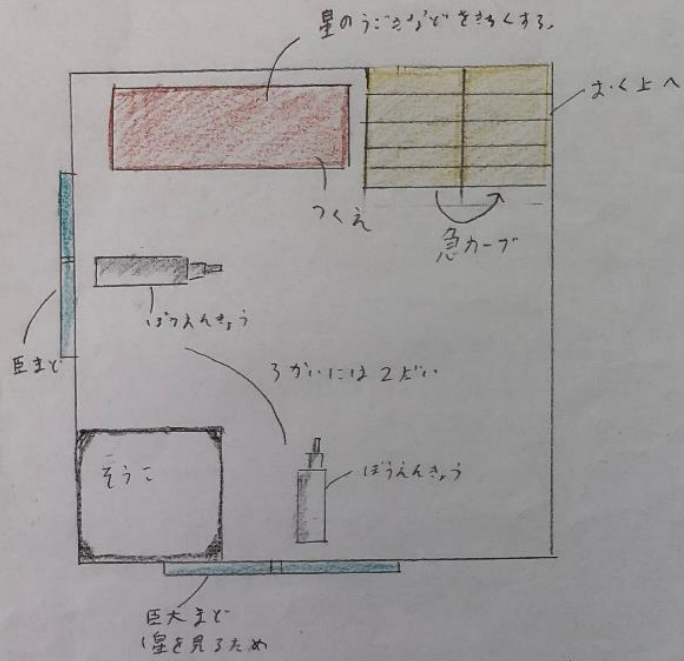 星のうごきなどをきろくする。
おく上へ
つくえ
急カーブ
ぼうえんきょう
巨まど
3がいには2だい
そうこ
ぼうえんきょう
巨大まど
(星を見るため